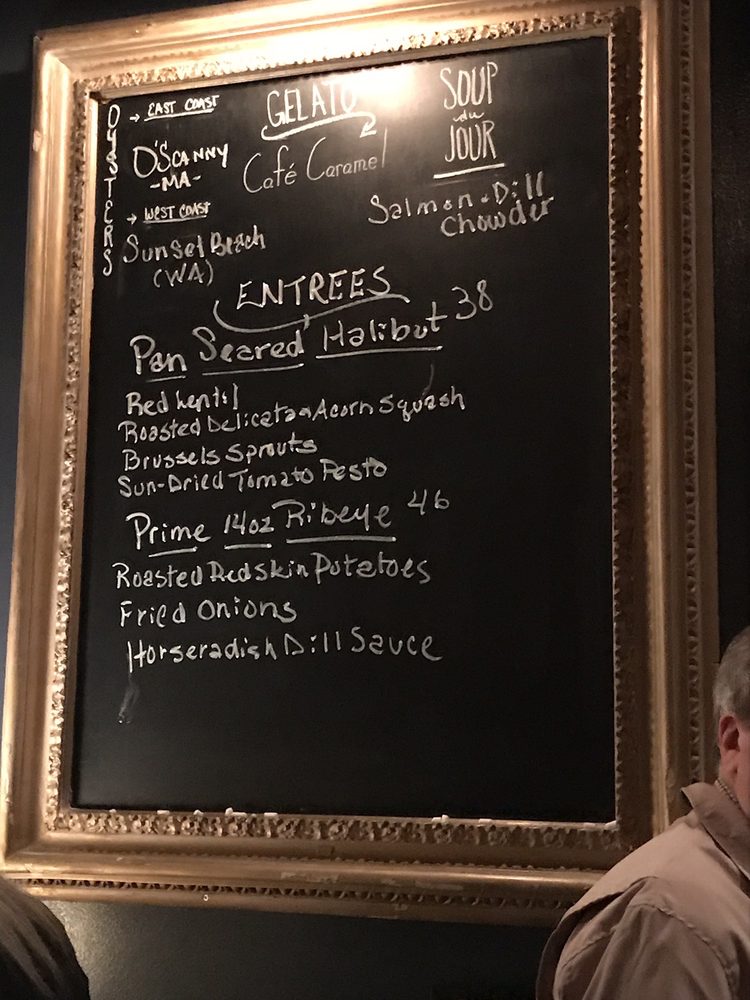 OYSTERS
→ EAST COAST
O'SCANNY
-MA-
→ WEST COAST
Sunset Beach
(WA)
GELATO
Café Caramel
SOUP
du
JOUR
Salmon-Dill
Chowder
ENTREES
Pan Seared Halibut 38
Red Lentil
Roasted Delicata & Acorn Squash
Brussels Sprouts
Sun-Dried Tomato Pesto
Prime 14oz Ribeye 46
Roasted Redskin Potatoes
Fried Onions
Horseradish Dill Sauce